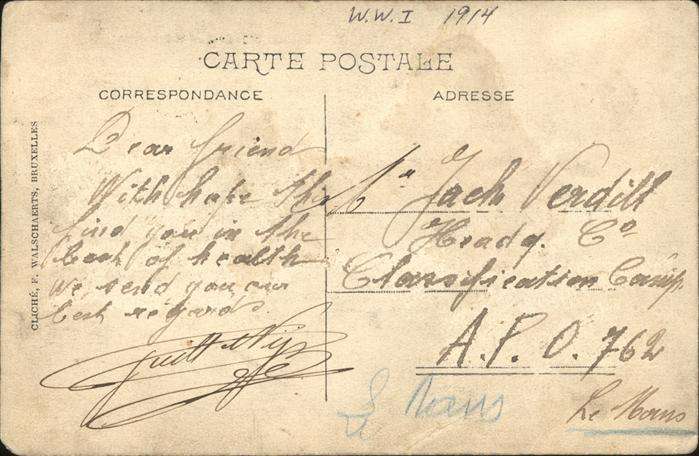 W.W.I 1914
CARTE POSTALE
CORRESPONDANCE
ADRESSE
CLICHÉ, F. WALSCHAERTS, BRUXELLES
Dear friend
With hope this
find you in the
best of health
we send you our
best regards
Jack Verdill
Headq. Co
Classification Camp.
A.P.O. 762
Le Mans
Le Mans